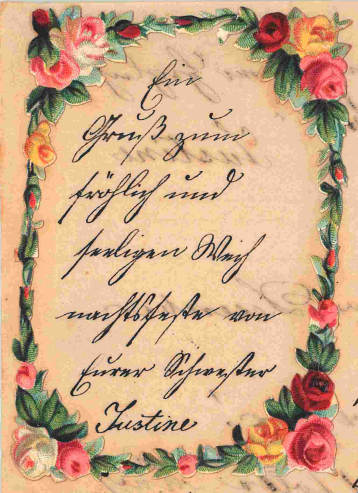 Ein
Gruß zum
fröhlich und
seeligen Weih
nachtsfeste von
Eurer Schwester
Justine